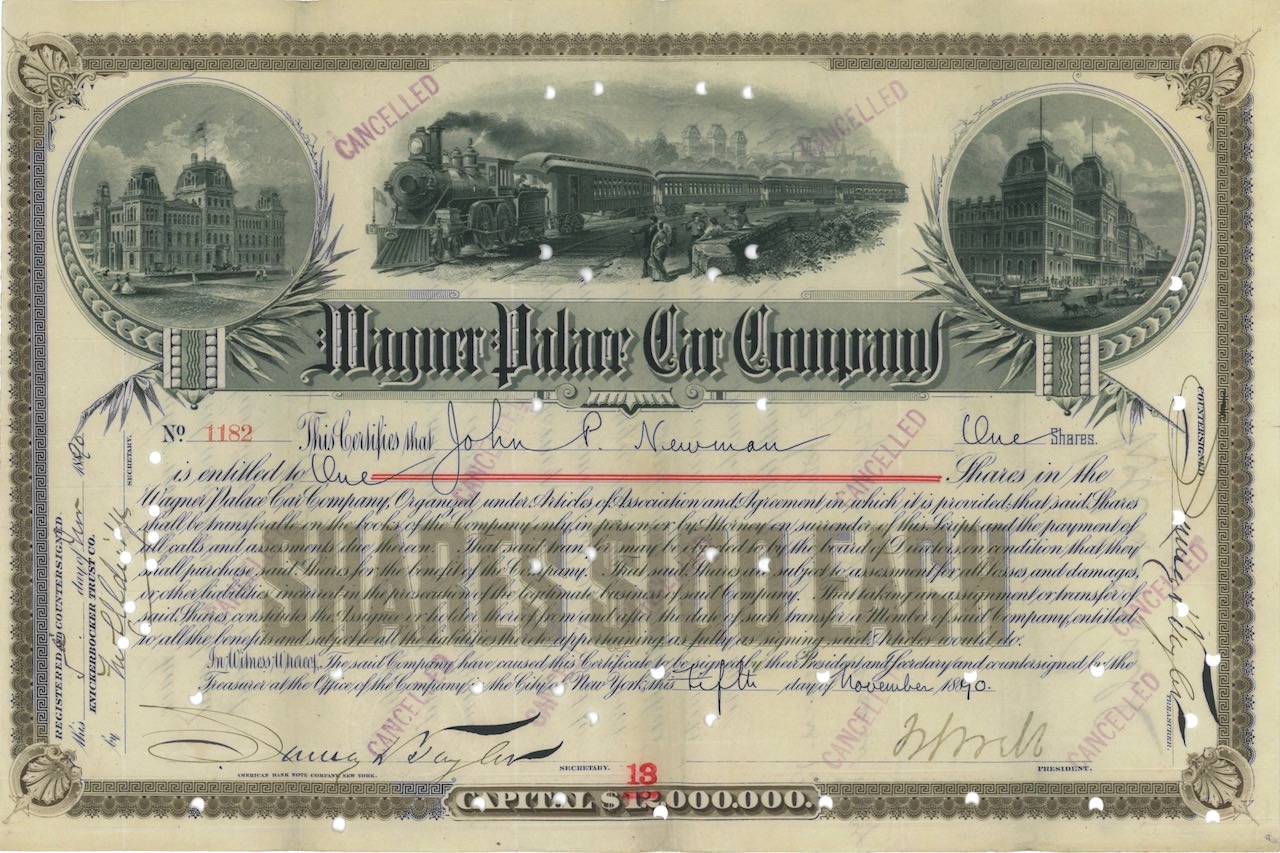 CANCELLED
CANCELLED
Wagner Palace Car Company
No 1182 This Certifies that John P. Newman One Shares.
is entitled to One Shares in the
Wagner Palace Car Company, Organized under Articles of Association and Agreement in which it is provided, that said Shares
shall be transferable on the books of the Company only in person or by Attorney on surrender of this Script and the payment of
all calls and assessments due thereon. That said transfer may be by the board of Directors, on condition that they
shall purchase said Shares for the benefit of the Company. That said Shares are subject to assessment for all losses, and damages,
or other liabilities incurred in the prosecution of the legitimate business of said Company. That taking an assignment or transfer of
said Shares constitutes the Assignee or holder thereof from and after the date of such transfer a Member of said Company, entitled
to all the benefits and subject to all the liabilities thereto appertaining as fully as signing said Articles would do.
SHARES $100 EACH
In Witness Whereof, The said Company have caused this Certificate to be signed by their President and Secretary and countersigned by the
Treasurer at the Office of the Company in the City of New York, this fifth day of November 1890.
SECRETARY.
PRESIDENT.
AMERICAN BANK NOTE COMPANY, NEW YORK.
13
CAPITAL $12,000,000.
REGISTERED AND COUNTERSIGNED
this 5 day of Nov 1890
KNICKERBOCKER TRUST CO.
by
SECRETARY.
COUNTERSIGNED
TREASURER.
CANCELLED
CANCELLED
CANCELLED
CANCELLED
CANCELLED
CANCELLED
CANCELLED
CANCELLED